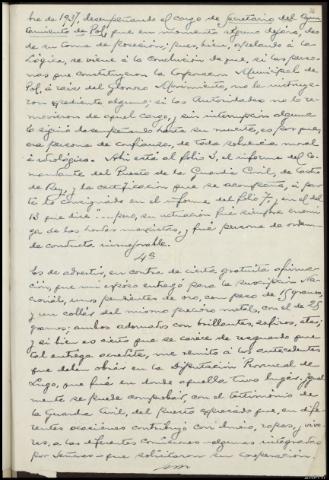 bre de 1937, desempeñando el cargo de Secretario del Ayun-
tamiento de Pol, que en momento alguno dejara, des-
de su toma de posesión; pues, bien, apelando a la
lógica, se viene a la conclusión de que, si las perso-
nas que constituyeron la Corporación Municipal de
Pol, a raíz del Glorioso Movimiento, no le instruye-
ron expediente alguno; si las Autoridades no le re-
movieron de aquel cargo, y sin interrupción alguna
lo siguió desempeñando hasta su muerte, es por que,
era persona de confianza, de toda solvencia moral
e ideológica. Ahí está al folio 3, el informe del Co-
mandante del Puesto de la Guardia Civil, de Castro
de Rey, y la certificación que se acompaña, y por
lo consignado en el informe del folio 7, y en el del
13 que dice "... pues, su actuación fué siempre enemi-
ga de las hordas marxistas, y fué persona de orden
de conducta inmejorable.
4º
Es de advertir, en contra de cierta gratuita afirma-
ción, que mi esposo entregó para la suscripción Na-
cional, unos pendientes de oro, con peso de 15 gramos
y un collar del mismo precioso metal, con el de 25
gramos; ambos adornados con brillantes, zafiros, etc;
y si bien es cierto que se carece de resguardo que
tal entrega acredite, me remito a los antecedentes
que deben obrar en la Diputación Provincial de
Lugo, que fué en donde aquella tuvo lugar, y igual-
mente se puede comprobar, con el testimonio de
la Guardia Civil, del puesto expresado que, en dife-
rentes ocasiones contribuyó con dinero, ropas, y víve-
res, a las diferentes comisiones algunas integradas
por Señoras que solicitaron su cooperación.